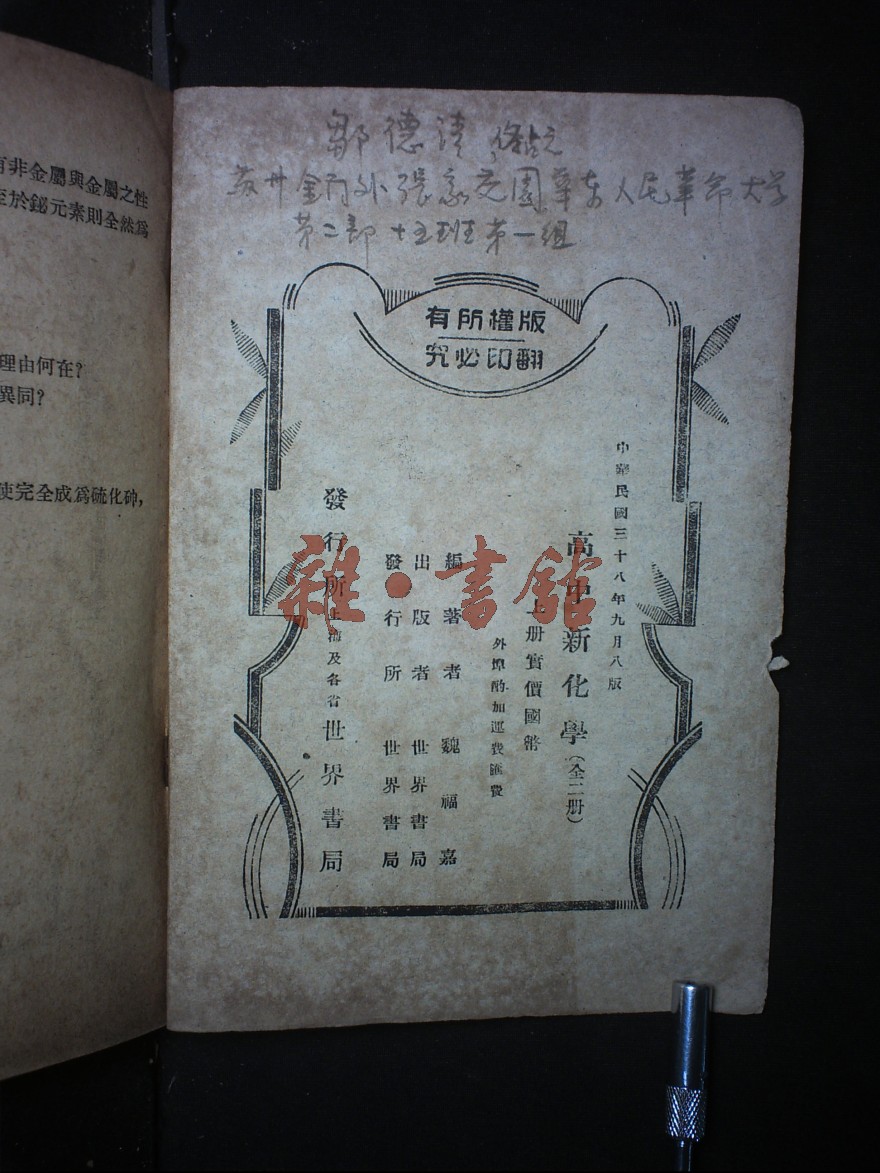 有非金屬與金屬之性
至於鉍元素則全然爲
理由何在?
異同?
使完全成爲硫化砷,
鄒德清
张家花園華东人民革命大学
第二部十五班第一组
版權所有
翻印必究
中華民國三十八年九月八版
高中新化學(全二册)
上册實價國幣
外埠酌加運費匯費
編著者 魏福嘉
出版者 世界書局
發行所 世界書局
發行所 上海及各省 世界書局
雜·書館